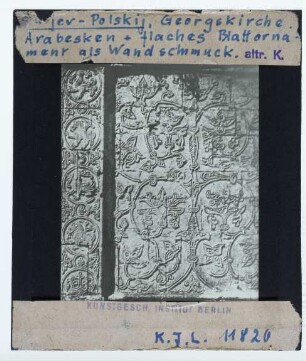 jev-Polskij, Georgskirche.
Arabesken + flaches Blattorna-
ment als Wandschmuck. altr. K.
KUNSTGESCH. INSTITUT BERLIN
K.J.L. 11820